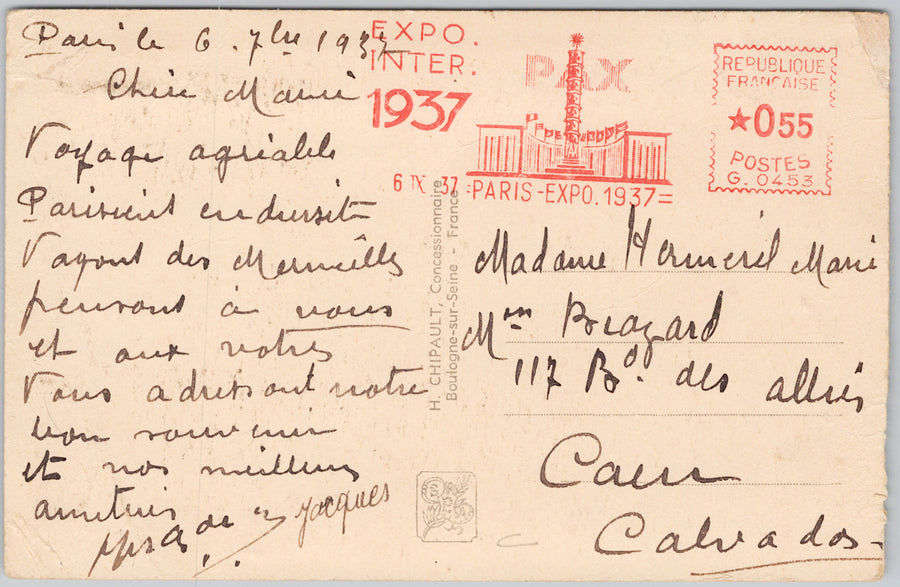 Paris le 6 . 7bre 1937
Chère Marie
Voyage agréable
Parisient en dirsit
Voyont des Merveilles
pensont à vous
et aux votres
Vous adressont notre
bon souvenir
et nos meilleurs
amitiés
Jacques
EXPO.
INTER.
1937
PAX
6 IX 37 =PARIS-EXPO.1937=
REPUBLIQUE
FRANÇAISE
★055
POSTES
G. 0453
H. CHIPAULT, Concessionnaire
Boulogne-sur-Seine - France
Madame Hermeril Marie
Mon Brazard
117 Bd. des alliés
Caen
Calvados